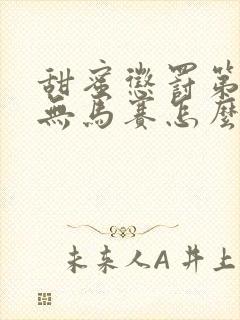 甜蜜懲罰第
無馬賽怎麼
未来人A 井上